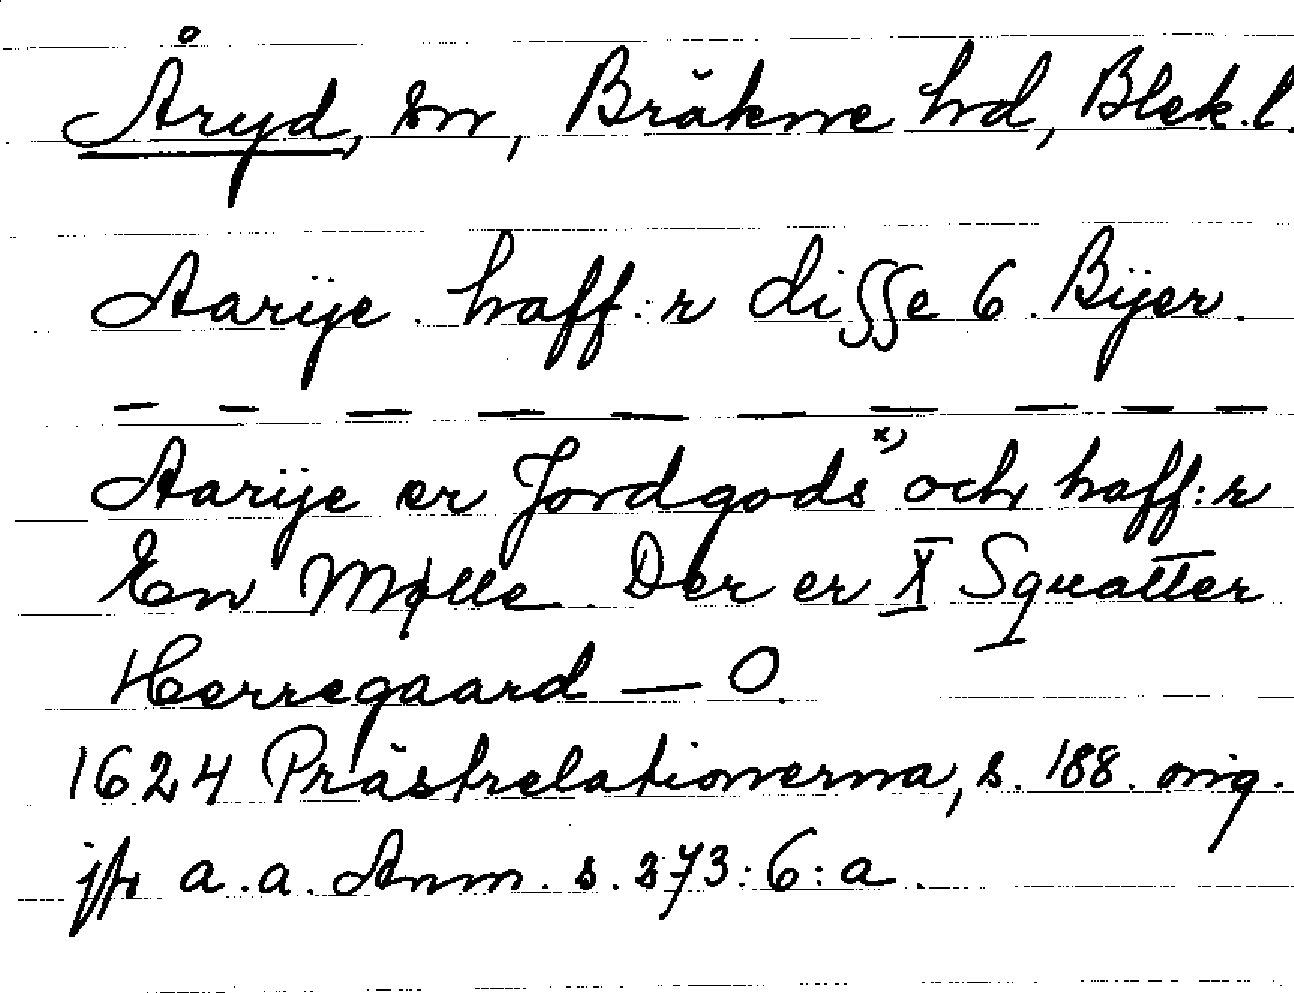 Åryd, sn, Bräkne hd, Blek. l.
Aarÿe haff:r disse 6 Bÿer.
— — — — — — — — — —
Aarÿe er Jordgods x) och haff:r
En Mølle. Der er X Squatter
Herregaard — 0.
1624 Prästrelationerna, s. 188. orig.
jfr a.a. Anm. s. 273:6:a.